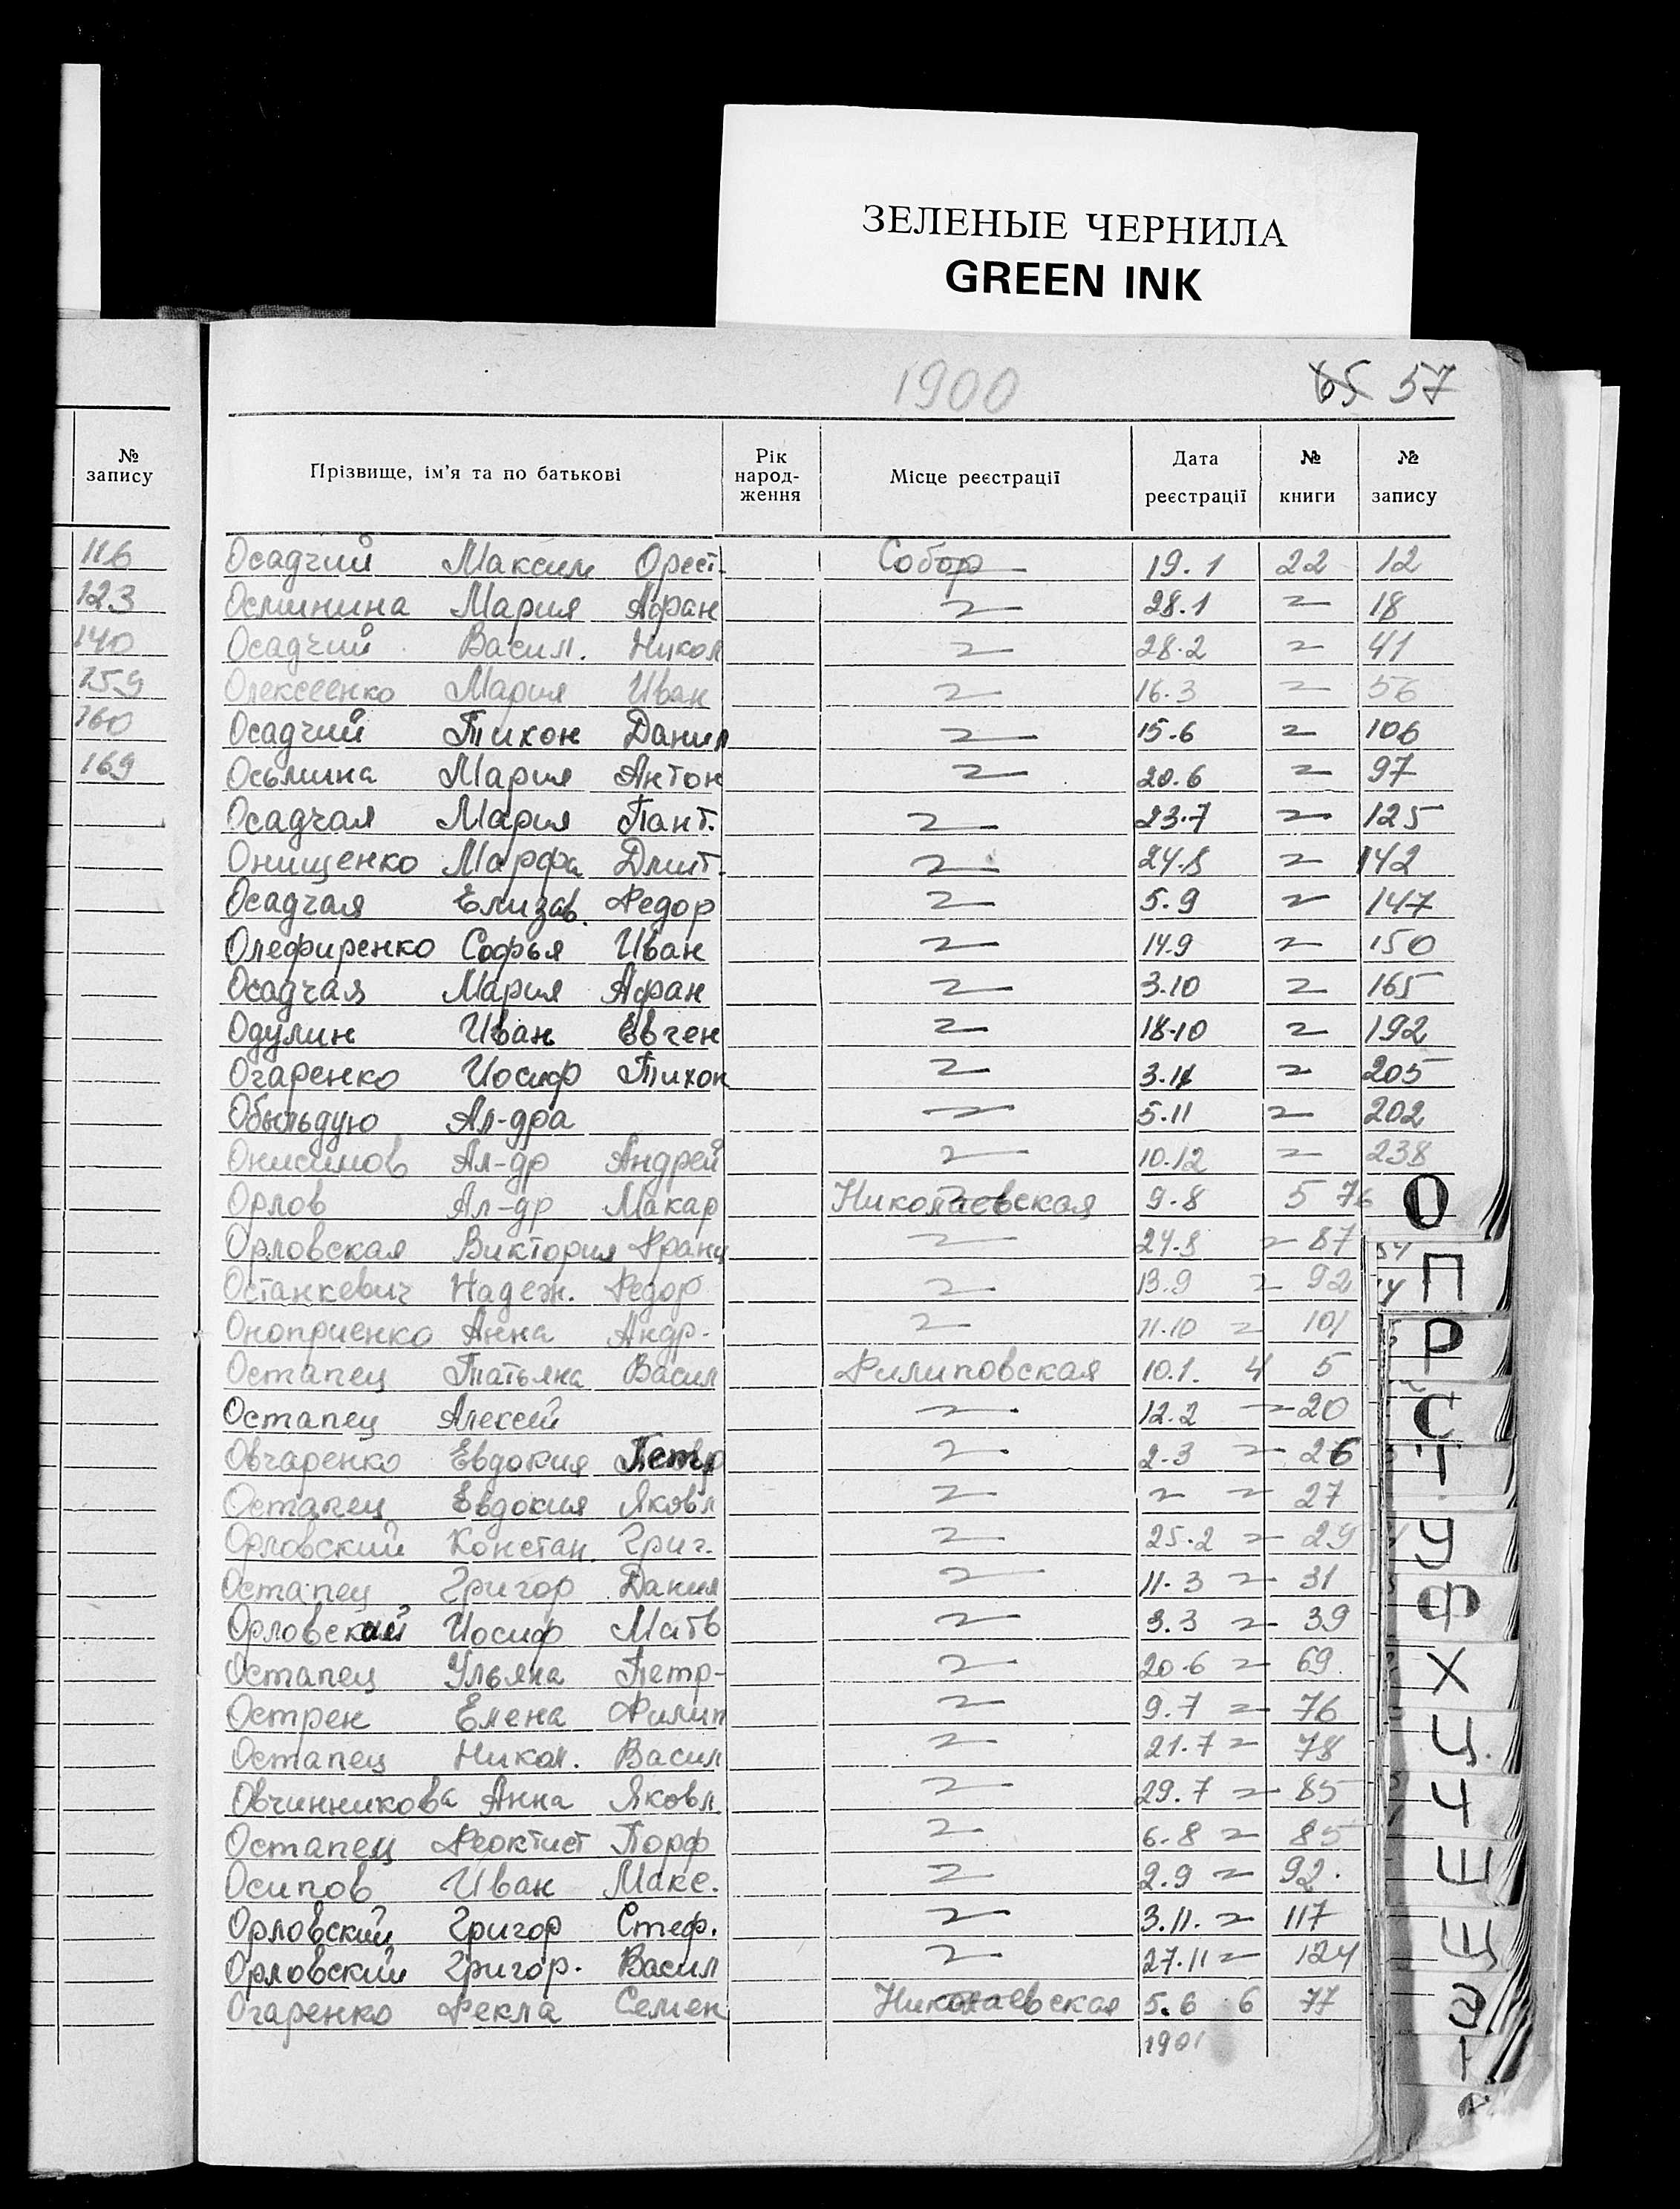 ЗЕЛЕНЫЕ ЧЕРНИЛА
GREEN INK
1900 65 57
№ запису
Прізвище, ім'я та по батькові
Рік народ-ження
Місце реєстрації
Дата реєстрації
№ книги
№ запису
116
123
140
159
160
169
Осадчий Максим Орест. Собор 19.1 22 12
Осминина Мария Афран 〃 28.1 〃 18
Осадчий Васил. Никол 〃 28.2 〃 41
Олексеенко Мария Иван 〃 16.3 〃 56
Осадчий Тихон Данил 〃 15.6 〃 106
Осьмина Мария Антон 〃 20.6 〃 97
Осадчая Мария Пант. 〃 23.7 〃 125
Онищенко Марфа Дмит. 〃 24.8 〃 142
Осадчая Елизав. Федор 〃 5.9 〃 147
Олефиренко Софья Иван 〃 14.9 〃 150
Осадчая Мария Афан 〃 3.10 〃 165
Одулин Иван Евген 〃 18.10 〃 192
Огаренко Иосиф Тихон 〃 3.11 〃 205
Ал-дра 〃 5.11 〃 202
Онисимов Ал-др Андрей 〃 10.12 〃 238
Орлов Ал-др Макар Николаевская 9.8 5 76
Орловская Виктория Франц 〃 24.8 〃 87
Останкевич Надеж. Федор 〃 13.9 〃 92
Оноприенко Анна Андр. 〃 11.10 〃 101
Остапец Татьяна Васил Филиповская 10.1. 4 5
Остапец Алексей 〃 12.2 〃 20
Овчаренко Евдокия Петр 〃 2.3 〃 26
Остапец Евдокия Яковл 〃 〃 〃 27
Орловский Констан. Григ. 〃 25.2 〃 29
Остапец Григор Данил 〃 11.3 〃 31
Орловский Иосиф Матв 〃 3.3 〃 39
Остапец Ульяна Петр 〃 20.6 〃 69
Острен Елена Филип 〃 9.7 〃 76
Остапец Никол. Васил 〃 21.7 〃 78
Овчинникова Анна Яковл 〃 29.7 〃 85
Остапец Феоктист Порф 〃 6.8 〃 85
Осипов Иван Макс. 〃 2.9 〃 92.
Орловский Григор Стеф. 〃 3.11. 〃 117
Орловский Григор. Васил 〃 27.11 〃 124
Огаренко Фекла Семен Николаевская 5.6 6 77
1901
О
П
Р
С
Т
У
Ф
Х
Ц
Ч
Ш
Щ